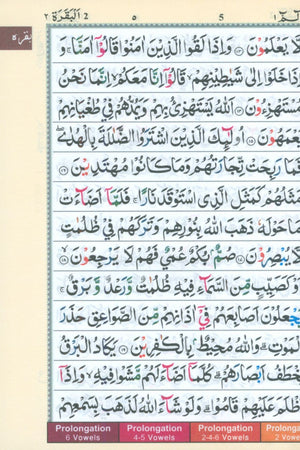 ٢ اَلْبَقَرَة 2 ٥ 5 الٓمّٓ ١
بقرة
لَّا يَعْلَمُوْنَ ﴿١٣﴾ وَاِذَا لَقُوا الَّذِيْنَ اٰمَنُوْا قَالُوْٓا اٰمَنَّا ۖۚ وَ
اِذَا خَلَوْا اِلٰى شَيٰطِيْنِهِمْ ۙ قَالُوْٓا اِنَّا مَعَكُمْ ۙ اِنَّمَا نَحْنُ
مُسْتَهْزِءُوْنَ ﴿١٤﴾ اَللّٰهُ يَسْتَهْزِئُ بِهِمْ وَيَمُدُّهُمْ فِىْ طُغْيَانِهِمْ
يَعْمَهُوْنَ ﴿١٥﴾ اُولٰٓئِكَ الَّذِيْنَ اشْتَرَوُا الضَّلٰلَةَ بِالْهُدٰى ۪
فَمَا رَبِحَتْ تِّجَارَتُهُمْ وَمَا كَانُوْا مُهْتَدِيْنَ ﴿١٦﴾
مَثَلُهُمْ كَمَثَلِ الَّذِى اسْتَوْقَدَ نَارًا ۚ فَلَمَّآ اَضَآءَتْ
مَا حَوْلَهٗ ذَهَبَ اللّٰهُ بِنُوْرِهِمْ وَتَرَكَهُمْ فِىْ ظُلُمٰتٍ
لَّا يُبْصِرُوْنَ ﴿١٧﴾ صُمٌّۢ بُكْمٌ عُمْىٌ فَهُمْ لَا يَرْجِعُوْنَ ۙ﴿١٨﴾
اَوْ كَصَيِّبٍ مِّنَ السَّمَآءِ فِيْهِ ظُلُمٰتٌ وَّرَعْدٌ وَّبَرْقٌ ۚ
يَجْعَلُوْنَ اَصَابِعَهُمْ فِىْٓ اٰذَانِهِمْ مِّنَ الصَّوَاعِقِ حَذَرَ
الْمَوْتِ ؕ وَاللّٰهُ مُحِيْطٌۢ بِالْكٰفِرِيْنَ ﴿١٩﴾ يَكَادُ الْبَرْقُ
يَخْطَفُ اَبْصَارَهُمْ ؕ كُلَّمَآ اَضَآءَ لَهُمْ مَّشَوْا فِيْهِ ۙۗ وَاِذَآ
اَظْلَمَ عَلَيْهِمْ قَامُوْا ؕ وَلَوْ شَآءَ اللّٰهُ لَذَهَبَ بِسَمْعِهِمْ
Prolongation Prolongation Prolongation Prolonga
6 Vowels 4-5 Vowels 2-4-6 Vowels 2 Vowe